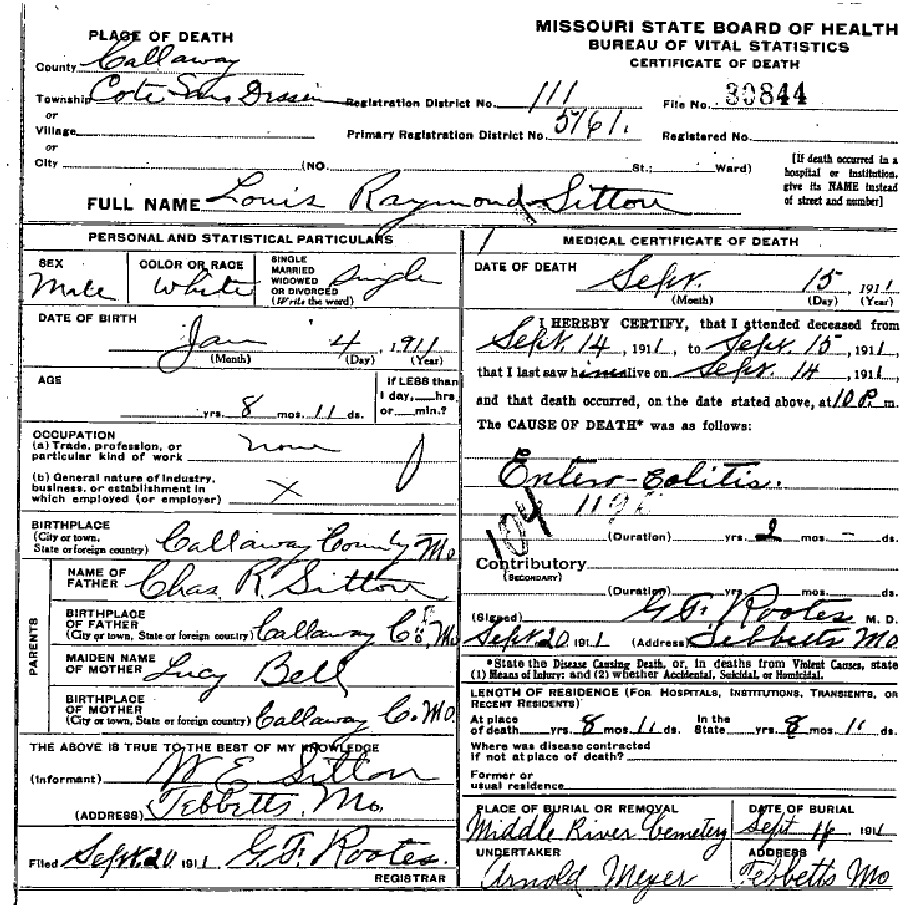 MISSOURI STATE BOARD OF HEALTH
BUREAU OF VITAL STATISTICS
CERTIFICATE OF DEATH
PLACE OF DEATH
County Callaway
Township Cote Sans Dessein Registration District No. 111 File No. 30844
or
Village Primary Registration District No. 5161. Registered No.
or
City (NO. St.; Ward)
[If death occurred in a
hospital or institution,
give its NAME instead
of street and number]
FULL NAME Louis Raymond Sitton
PERSONAL AND STATISTICAL PARTICULARS
SEX
Male
COLOR OR RACE
White
SINGLE
MARRIED
WIDOWED
OR DIVORCED
(Write the word)
Single
DATE OF BIRTH
Jan 4, 1911
(Month) (Day) (Year)
AGE
yrs. 8 mos. 11 ds.
If LESS than
1 day, hrs.
or min.?
OCCUPATION
(a) Trade, profession, or
particular kind of work none
(b) General nature of industry,
business, or establishment in
which employed (or employer) X
BIRTHPLACE
(City or town,
State or foreign country) Callaway County Mo
PARENTS
NAME OF
FATHER Chas R. Sitton
BIRTHPLACE
OF FATHER
(City or town, State or foreign country) Callaway Co. Mo
MAIDEN NAME
OF MOTHER Lucy Bell
BIRTHPLACE
OF MOTHER
(City or town, State or foreign country) Callaway C. Mo.
THE ABOVE IS TRUE TO THE BEST OF MY KNOWLEDGE
(Informant) W E Sitton
(ADDRESS) Tebbetts, Mo.
Filed Sept. 20 1911 G.F. Rootes.
REGISTRAR
MEDICAL CERTIFICATE OF DEATH
DATE OF DEATH
Sept. 15, 1911
(Month) (Day) (Year)
I HEREBY CERTIFY, that I attended deceased from
Sept. 14, 1911, to Sept. 15, 1911
that I last saw him alive on Sept. 14, 1911,
and that death occurred, on the date stated above, at 10 P. m.
The CAUSE OF DEATH* was as follows:
Entero-colitis.
104
(Duration) yrs. 2 mos. - ds.
Contributory
(SECONDARY)
(Duration) yrs. mos. ds.
(Signed) G.F. Rootes M. D.
Sept. 20 1911 (Address) Tebbetts Mo
*State the Disease Causing Death, or, in deaths from Violent Causes, state
(1) Means of Injury; and (2) whether Accidental, Suicidal, or Homicidal.
LENGTH OF RESIDENCE (FOR HOSPITALS, INSTITUTIONS, TRANSIENTS, OR
RECENT RESIDENTS)
At place
of death yrs. 8 mos. 11 ds.
In the
State yrs. 8 mos. 11 ds.
Where was disease contracted
if not at place of death?
Former or
usual residence
PLACE OF BURIAL OR REMOVAL
Middle River Cemetery
DATE OF BURIAL
Sept 1911
UNDERTAKER
Arnold Meyer
ADDRESS
Tebbetts Mo